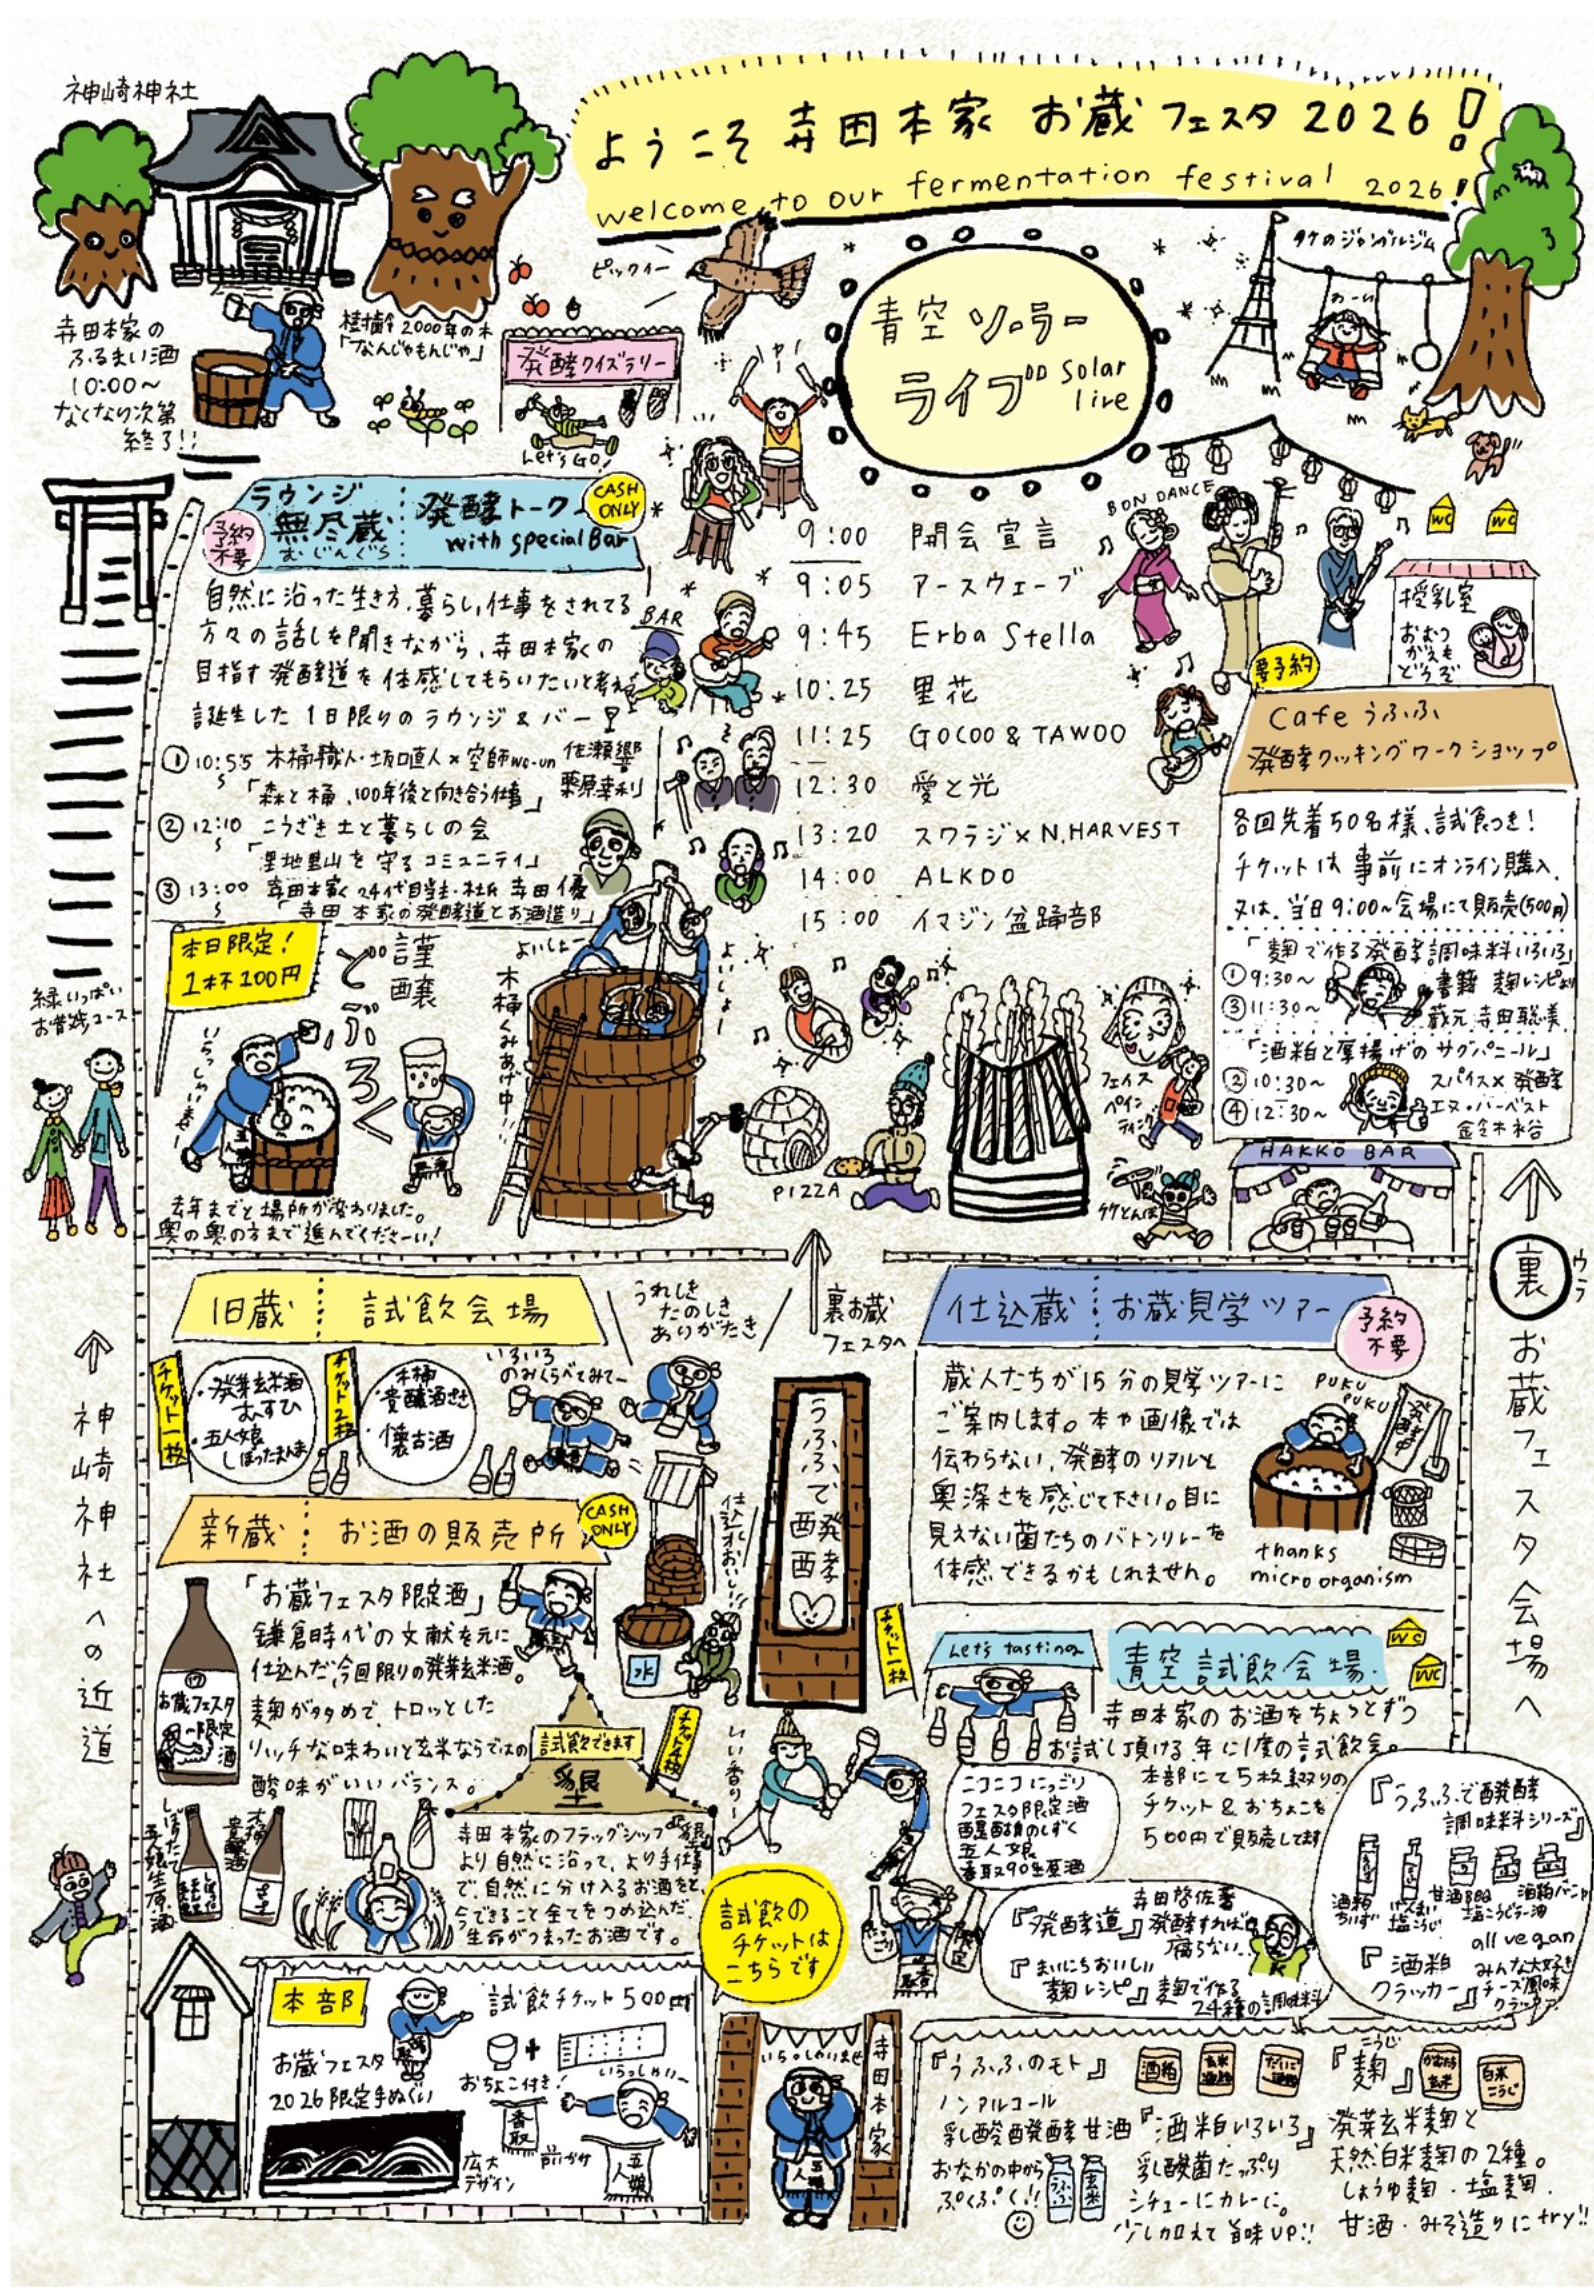 神崎神社
ようこそ 寺田本家 お蔵フェスタ 2026!
welcome to our fermentation festival 2026!
寺田本家の
ふるまい酒
10:00〜
なくなり次第
終了!!
樹齢2000年の木
「なんじゃもんじゃ」
ピックィー
発酵クイズラリー
Let's GO!
青空 ソーラー
ライブ
solar
live
竹のジャングルジム
わーい
ラウンジ
無尽蔵
むじんぐら
発酵トーク
with special Bar
CASH
ONLY
予約
不要
自然に沿った生き方、暮らし、仕事をされてる
方々の話しを聞きながら、寺田本家の
目指す発酵道を体感してもらいたいと考え
誕生した1日限りのラウンジ&バー
BAR
① 10:55 木桶職人・坂口直人×空師wo-un 佐瀬響
栗原幸利
「森と桶、100年後と向き合う仕事」
② 12:10 こうざき土と暮らしの会
「里地里山を守るコミュニティ」
③ 13:00 寺田本家24代目当主・杜氏 寺田優
「寺田本家の発酵道とお酒造り」
9:00 開会宣言
9:05 アースウェーブ
9:45 Erba Stella
10:25 里花
11:25 GOCOO & TAWOO
12:30 愛と光
13:20 スワラジ×N.HARVEST
14:00 ALKDO
15:00 イマジン盆踊部
BON DANCE
WC
WC
授乳室
おむつ
がえも
どうぞ
要予約
Cafe うふふ
発酵クッキングワークショップ
各回先着50名様、試食つき!
チケットは事前にオンライン購入、
又は、当日9:00〜会場にて販売(500円)
「麹で作る発酵調味料いろいろ」
① 9:30〜 書籍 麹レシピより
③ 11:30〜 蔵元 寺田聡美
「酒粕と厚揚げのサグパニール」
② 10:30〜 スパイス×発酵
④ 12:30〜 エヌ・ハーベスト
金谷木裕
本日限定!
1杯100円
謹醸
どぶろく
いらっしゃいませー
去年までと場所が変わりました。
奥の奥の方まで進んでくださーい!
よいしょー
よいしょー
木桶くみあげ中!!
緑いっぱい
お散歩コース
PIZZA
フェイス
ペイン
ティング
竹とんぼ
HAKKO BAR
↑ 裏 ウラ お蔵フェスタ会場へ
↑ 神崎神社への近道
旧蔵 試飲会場
チケット一枚
・発芽玄米酒
むすひ
・五人娘
しぼったまんま
チケット2枚
木桶
・貴醸酒ささ
・懐古酒
いろいろ
のみくらべてみて〜
うれしき
たのしき
ありがたき
裏お蔵
フェスタへ
うふふで発酵
仕込水おいしい!!
水
新蔵 お酒の販売所
CASH
ONLY
「お蔵フェスタ限定酒」
鎌倉時代の文献を元に
仕込んだ、今回限りの発芽玄米酒。
麹が多めで、トロッとした
リッチな味わいと玄米ならではの
酸味がいいバランス。
お蔵フェスタ
限定
酒
試飲できます
チケット4枚
寺田本家のフラッグシップ
より自然に沿って、より手仕事
で、自然に分け入るお酒をと、
今できること全てをつめ込んだ、
生命がつまったお酒です。
しぼりたて
五人娘生原酒
木桶
貴醸酒
いい香り〜
仕込蔵 お蔵見学ツアー
予約
不要
蔵人たちが15分の見学ツアーに
ご案内します。本や画像では
伝わらない、発酵のリアルと
奥深さを感じて下さい。目に
見えない菌たちのバトンリレーを
体感できるかもしれません。
PUKU
PUKU
発酵中
thanks
micro organism
チケット一枚
Let's tasting
青空試飲会場
WC
WC
寺田本家のお酒をちょっとずつ
お試し頂ける年に1度の試飲会。
本部にて5枚綴りの
チケット&おちょこを
500円で販売してます
ニコニコにごり
フェスタ限定酒
醍醐のしずく
五人娘
香取90生原酒
『うふふで発酵
調味料シリーズ』
酒粕
ちいず
げんまい
塩こうじ
甘酒BBQ
塩こうじラー油
酒粕バーニャ
all vegan
『酒粕
クラッカー』
みんな大好き
チーズ風味
クラッカー
寺田啓佐著
『発酵道』 発酵すれば
腐らない
『まいにちおいしい
麹レシピ』 麹で作る
24種の調味料
試飲の
チケットは
こちらです
本部
試飲チケット500円
お蔵フェスタ
2026限定手ぬぐい
おちょこ付き!
いらっしゃいー
香取
広大
デザイン
前かけ
五人娘
いらっしゃいませ
寺田本家
五人娘
『うふふのモト』
ノンアルコール
乳酸発酵甘酒
おなかの中から
ぷくぷく!!
うふふ
玄米
酒粕
『酒粕いろいろ』
乳酸菌たっぷり
シチューにカレーに。
少し加えて旨味UP!!
こうじ
『麹』
かむたち
玄米
白米
こうじ
発芽玄米麹と
天然白米麹の2種。
しょうゆ麹・塩麹、
甘酒・みそ造りにtry!!